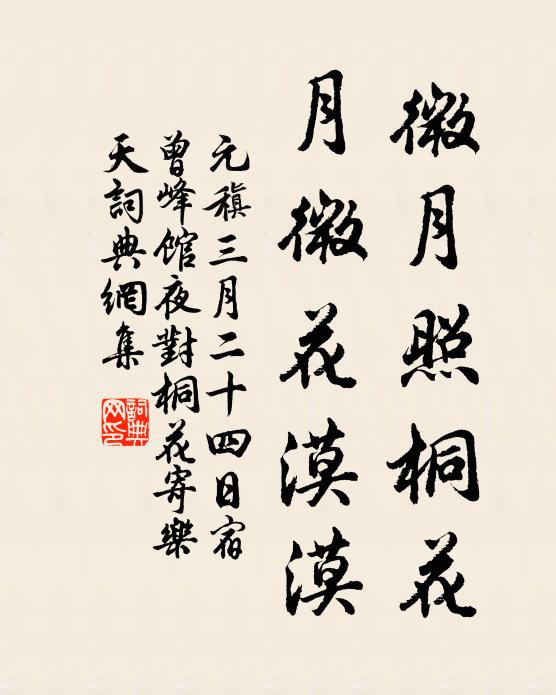 微月照桐花
月微花漠漠
元稹三月二十四日宿
曾峰館夜對桐花寄樂
天詞典網集
詞典網印